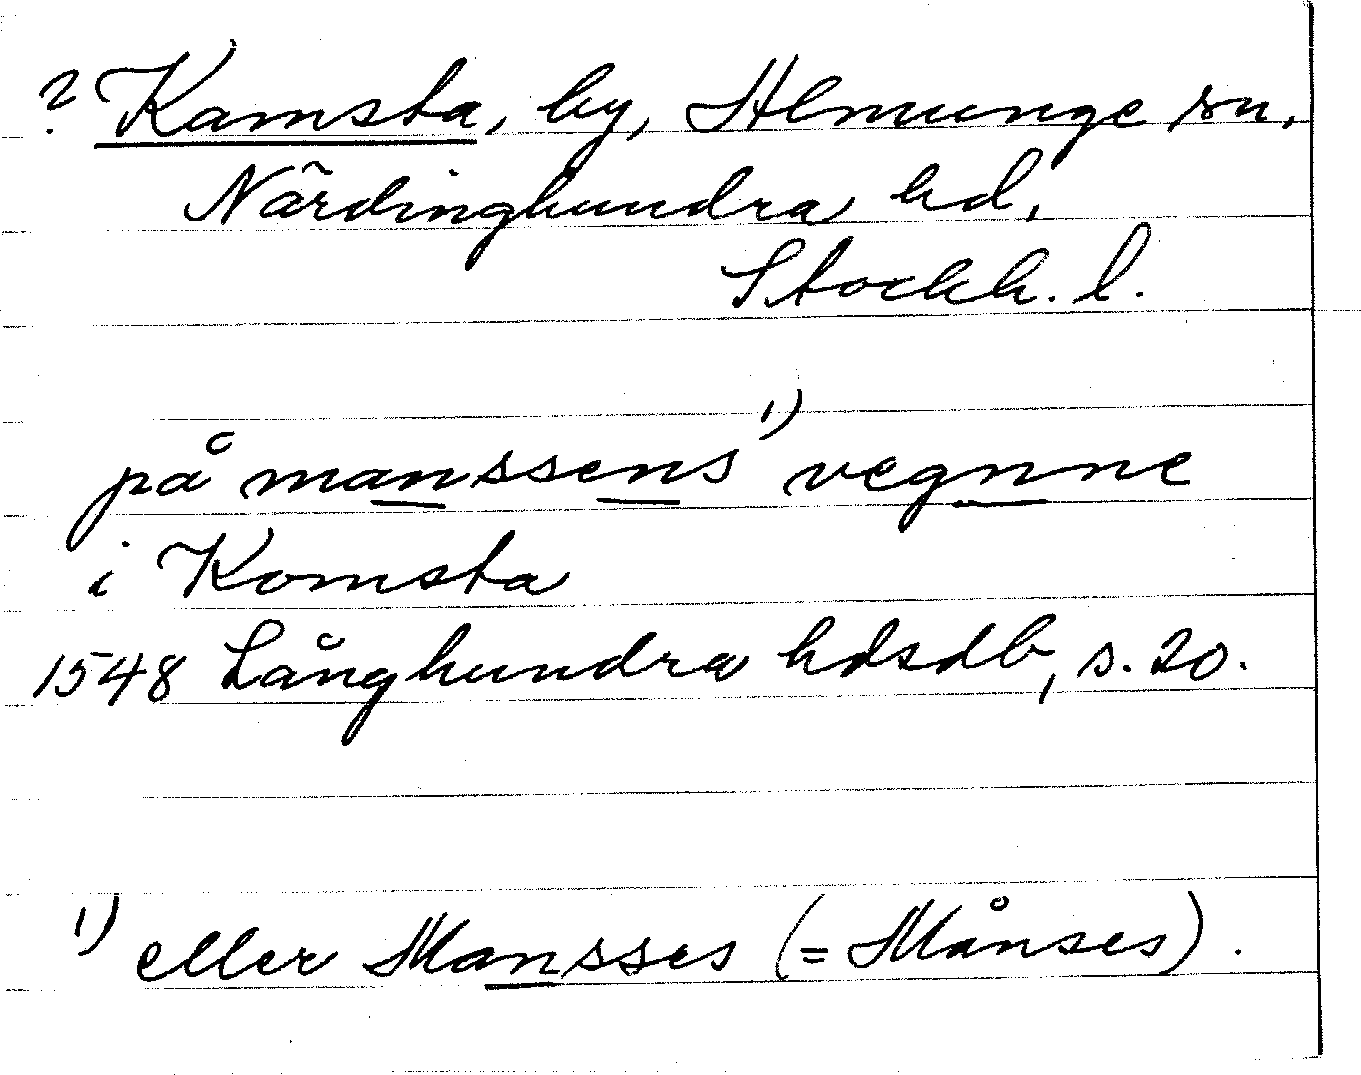 ? Kamsta, by, Almunge sn,
Närdinghundra hd,
Stockh. l.
på manssens¹⁾ vegnne
i Komsta
1548 Långhundra hdsdb, s. 20.
¹⁾ eller Mansses (= Månses).